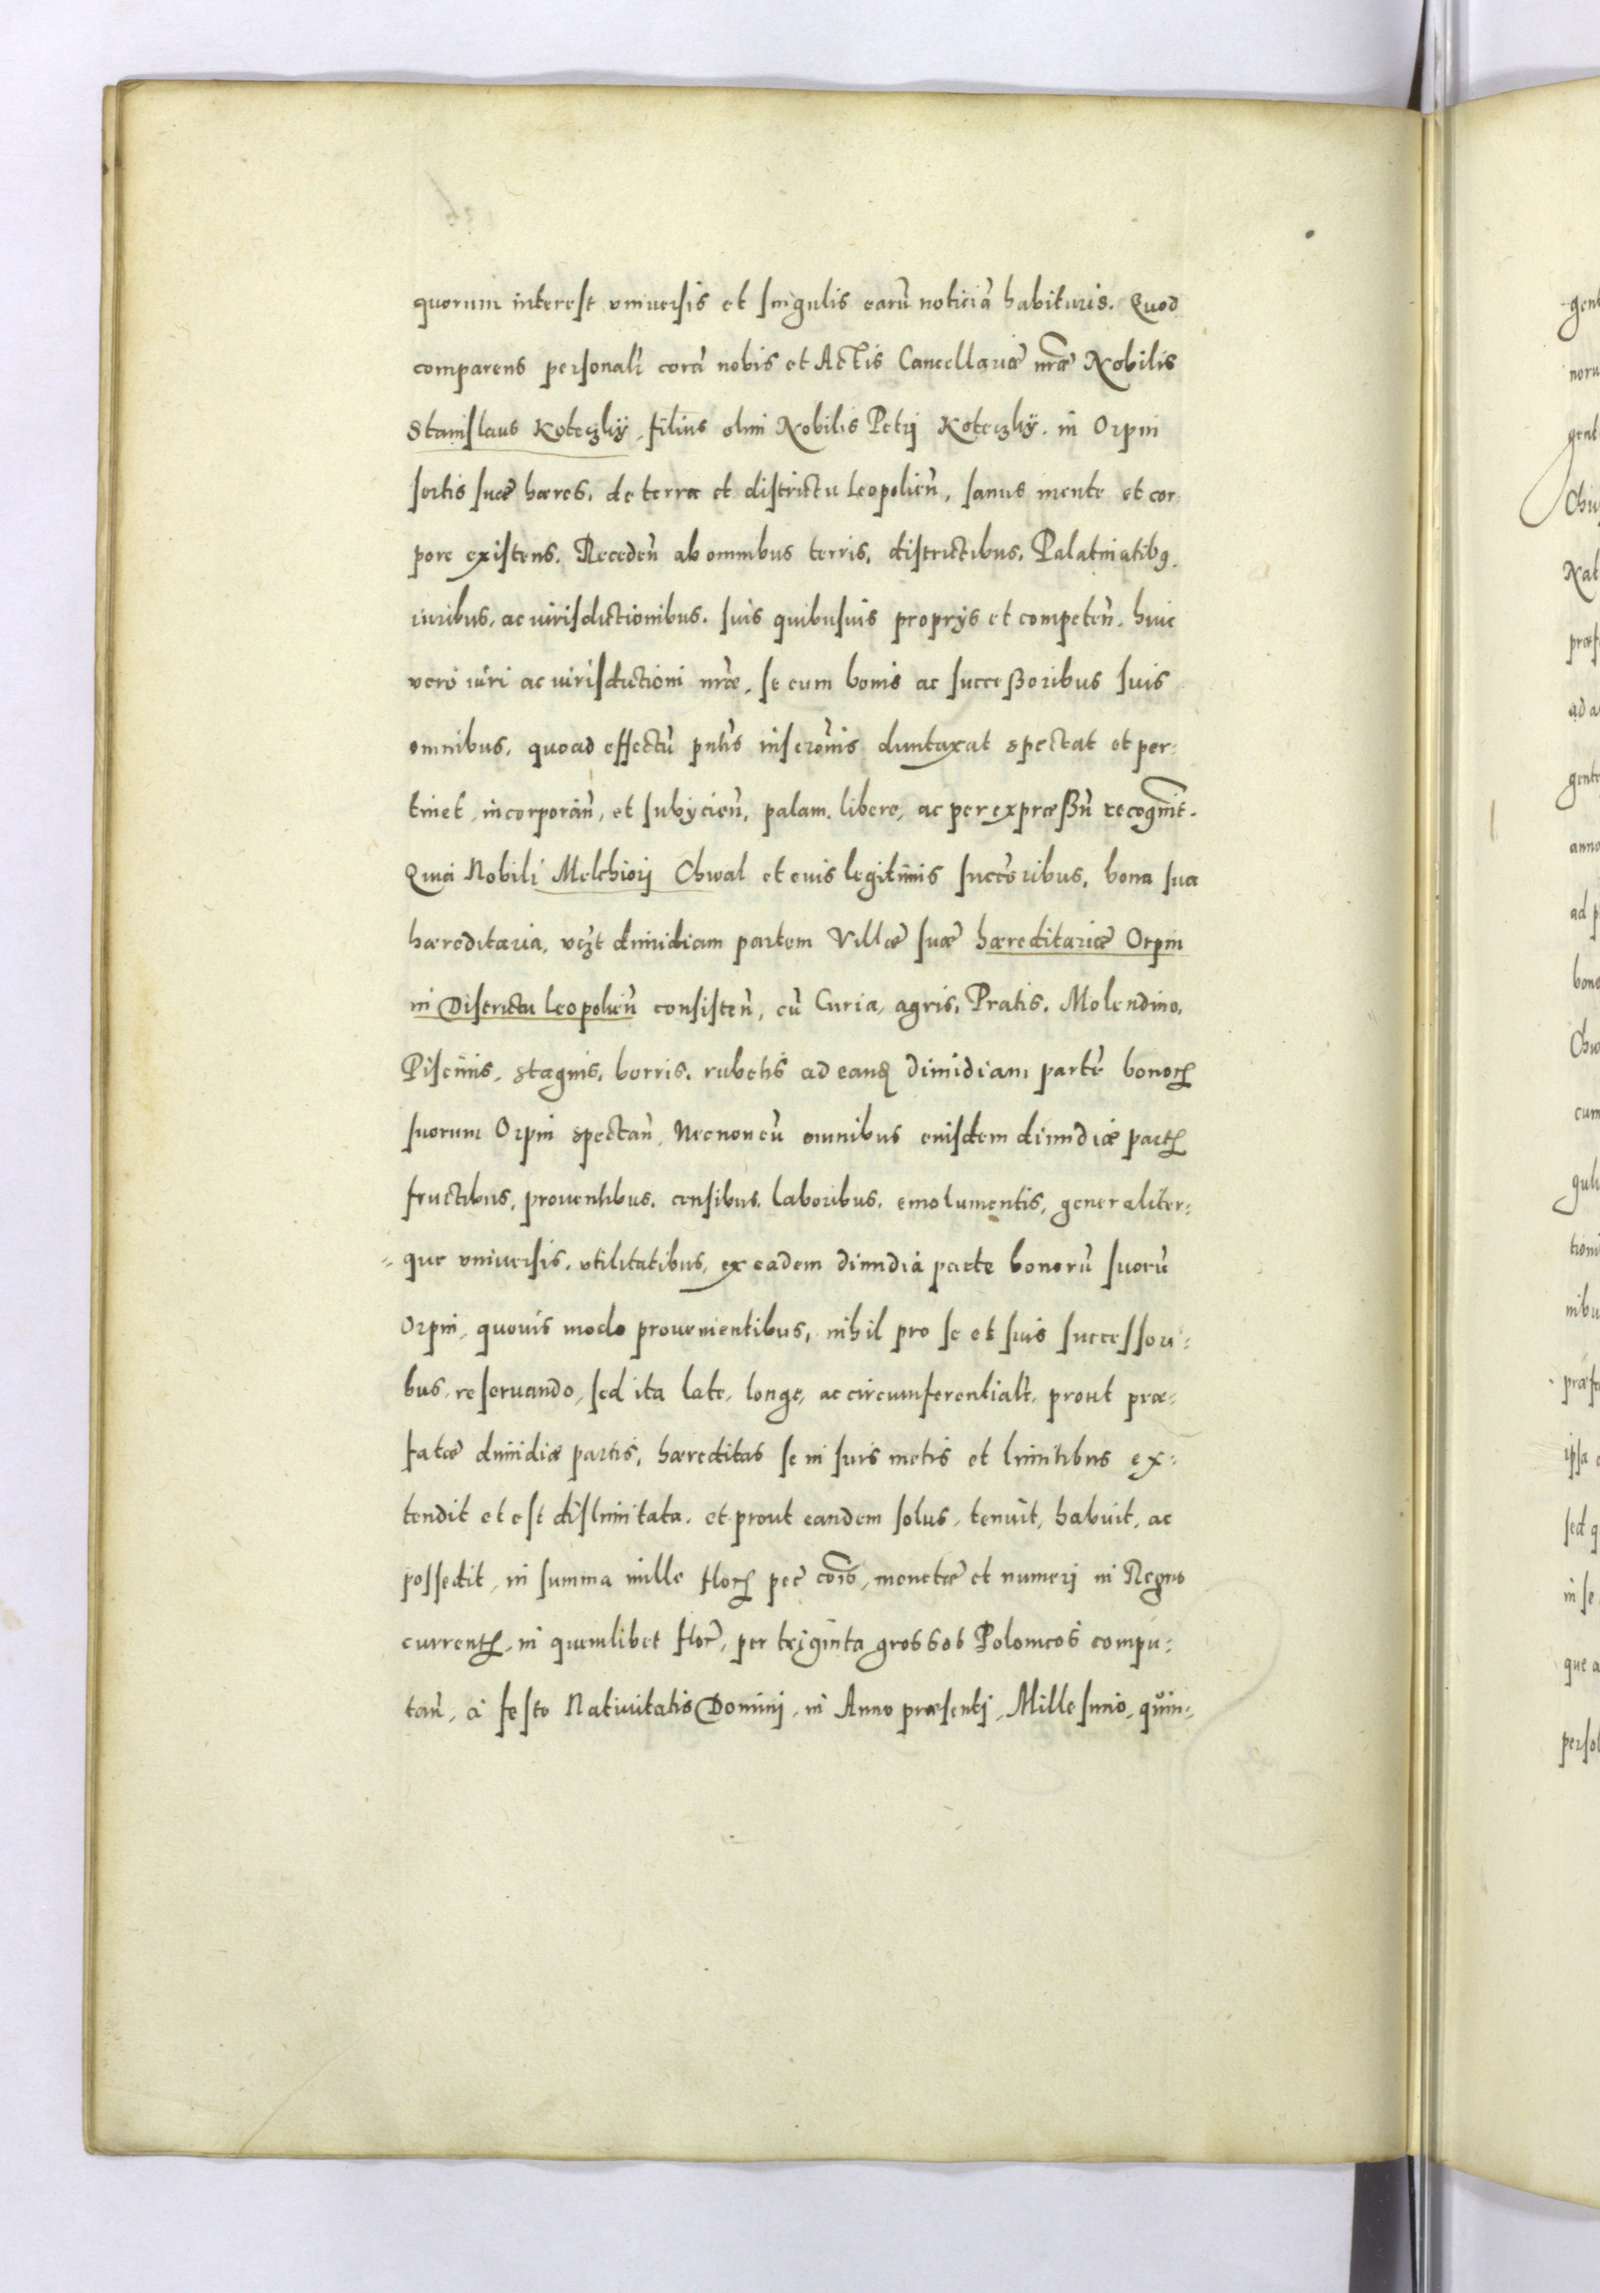 quorum interest vniuersis et singulis earū noticiā habituris. Quod
comparens personalr corā nobis et Actis Cancellariæ nr̄æ Nobilis
Stanislaus Koteczky, filius olim Nobilis Petrj Koteczky. in Orpin
sortis suæ hæres, de terra et districtu Leopolien̄, sanus mente et cor:
pore existens. Receden̄ ab omnibus terris, districtibus, Palatinatibq
iuribus, ac iurisdictionibus. suis quibusuis proprijs et competen̄. huic
vero iuri ac iurisdictioni nr̄æ, se cum bonis ac succeßoribus suis
omnibus, quoad effectū pntis inscrōnis duntaxat spectat et per:
tinet, incorporan̄, et subijcien̄, palam, libere, ac per expræßū recognit.
Quia Nobili Melchiorj Chwal et euis legitimis succ̄oribus, bona sua
hæreditaria, vczt dimidiam partem Villæ suæ hæreditariæ Orpin
in Districtu Leopolien̄ consisten̄, cū Curia, agris, Pratis, Molendino,
Piscinis, stagnis, borris, rubetis ad eanq dimidiam partē bonorꝝ
suorum Orpin spectan̄, Necnon cū omnibus euisdem dimidiæ partꝭ
fructibus, prouentibus, censibus, laboribus, emolumentis, generaliter:
que vniuersis, vtilitatibus, ex eadem dimidia parte bonorū suorū
Orpin, quouis modo prouenientibus, nihil pro se et suis successori:
bus, reseruando, sed ita late, longe, ac circumferentialr, prout præ:
fatæ dimidiæ partis, hæreditas se in suis metis et limitibus ex:
tendit et est dislimitata. et prout eandem solus, tenuit, habuit, ac
possedit, in summa mille florꝭ pec̄ cōis, monetæ et numerj in Regno
currentꝭ, in quemlibet flor, per triginta grossos Polonicos compu:
tan̄, a festo Natiuitatis Dominj, in Anno præsentj, Millesimo, quin: